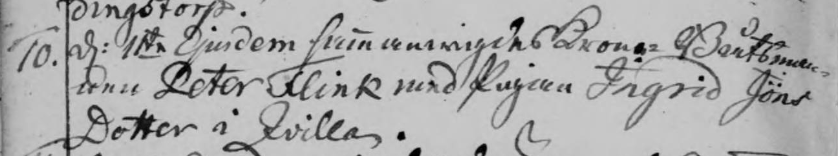 dingstorp.
10. d: 1ste Ejusdem sammanwigdes Krono= Båtsman=
nen Peter Flink med Pigan Ingrid Jöns
Dotter i Qvilla.